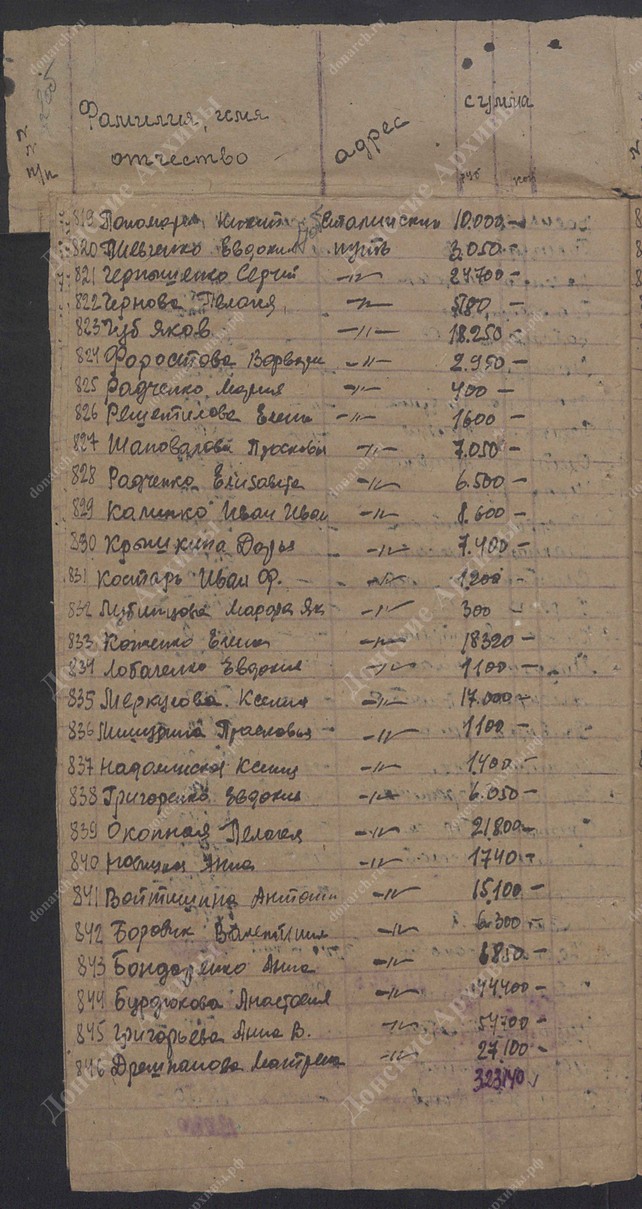 №
№
п/п
Фамилия, имя
отчество
адрес
сумма
руб коп
819 Пономарев Никит Сталинский 10.000 -
820 Шевченко Евдокия путь 3.050 -
821 Чернышенко Сергей -"- 24.700 -
822 Чернова Пелагия -"- 580 -
823 Чуб Яков -"- 18.250 -
824 Форостова Варвара -"- 2.950 -
825 Радченко Мария -"- 400 -
826 Решетилова Елена -"- 1600 -
827 Шаповалова Просковья -"- 7.050 -
828 Радченко Елизавета -"- 6.500 -
829 Калинко Иван Иван -"- 8.600 -
830 Крышкина Дарья -"- 7.400 -
831 Костарь Иван Ф. -"- 1.200 -
832 -"- 300 -
833 Коженко Елена -"- 18320 -
834 Лобаченко Евдокия -"- 1100 -
835 Меркулова Ксения -"- 17.000 -
836 Прасковья -"- 1100 -
837 Ксения -"- 1400 -
838 Григоренко Евдокия -"- 6.050 -
839 Окопная Пелагея -"- 21.800 -
840 Анна -"- 1740 -
841 Войтишина Антонин -"- 15.100 -
842 Боровик Валентина -"- 6.300 -
843 Бондаренко Анна -"- 6850 -
844 Бурдюкова Анастасия -"- 44400 -
845 Григорьева Анна В. -"- 54700 -
846 Матрена -"- 27.100 -
323140